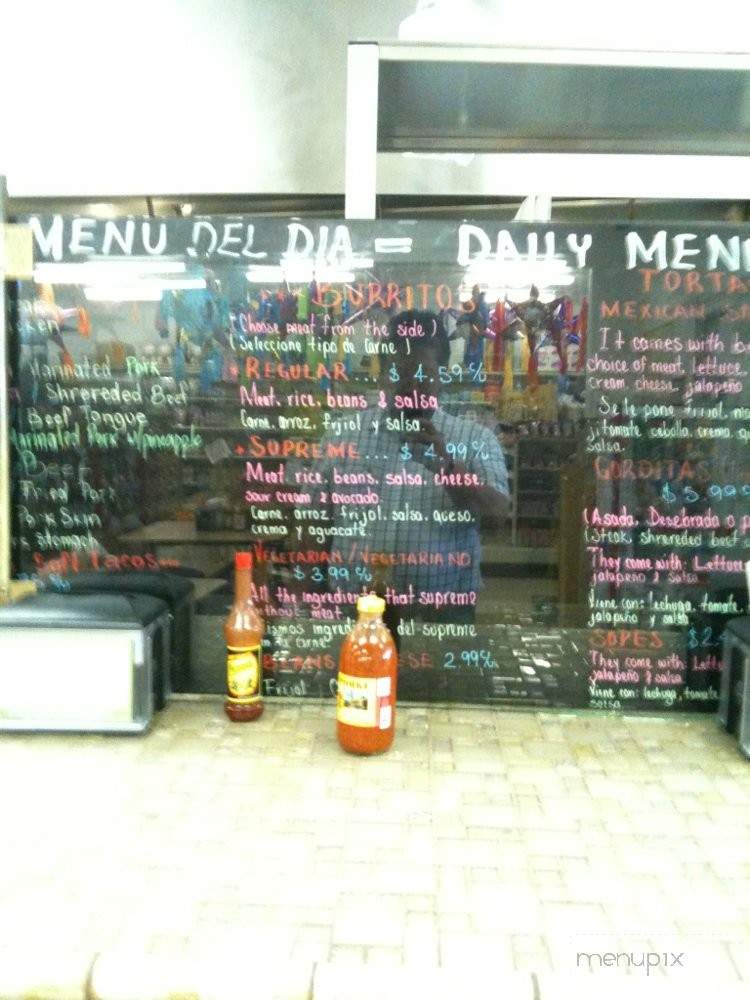 MENU DEL DIA = DAILY MENU
Marinated Pork
Shrereded Beef
Beef Tongue
Marinated Pork w/pineapple
Beef
Fried Pork
Pork Skin
Stomach
Soft Tacos
BURRITOS
(Choose meat from the side)
(Seleccione tipo de carne)
REGULAR... $ 4.59¢
Meat, rice, beans & salsa
Carne, arroz, frijol y salsa.
SUPREME... $ 4.99¢
Meat, rice, beans, salsa, cheese,
sour cream & avocado.
Carne, arroz, frijol, salsa, queso,
crema y aguacate.
VEGETARIAN / VEGETARIANO
$ 3.99¢
All the ingredients that supreme
without meat
mismos ingred del supreme
carne.
BEANS 2.99¢
Frijol
TORTA
MEXICAN
It comes with
choice of meat, lettuce
cream, cheese, jalapeño
Se le pone frijol,
jitomate cebolla, crema,
salsa.
GORDITAS
$5.99
(Asada, Desebrada o
(Steak, shrereded beef
They come with: Lettuce
jalapeño & salsa
Viene con: lechuga, tomate,
jalapeño y salsa
SOPES $2
They come with: Lettu
jalapeño & salsa
Viene con: lechuga, tomate
salsa
menupix